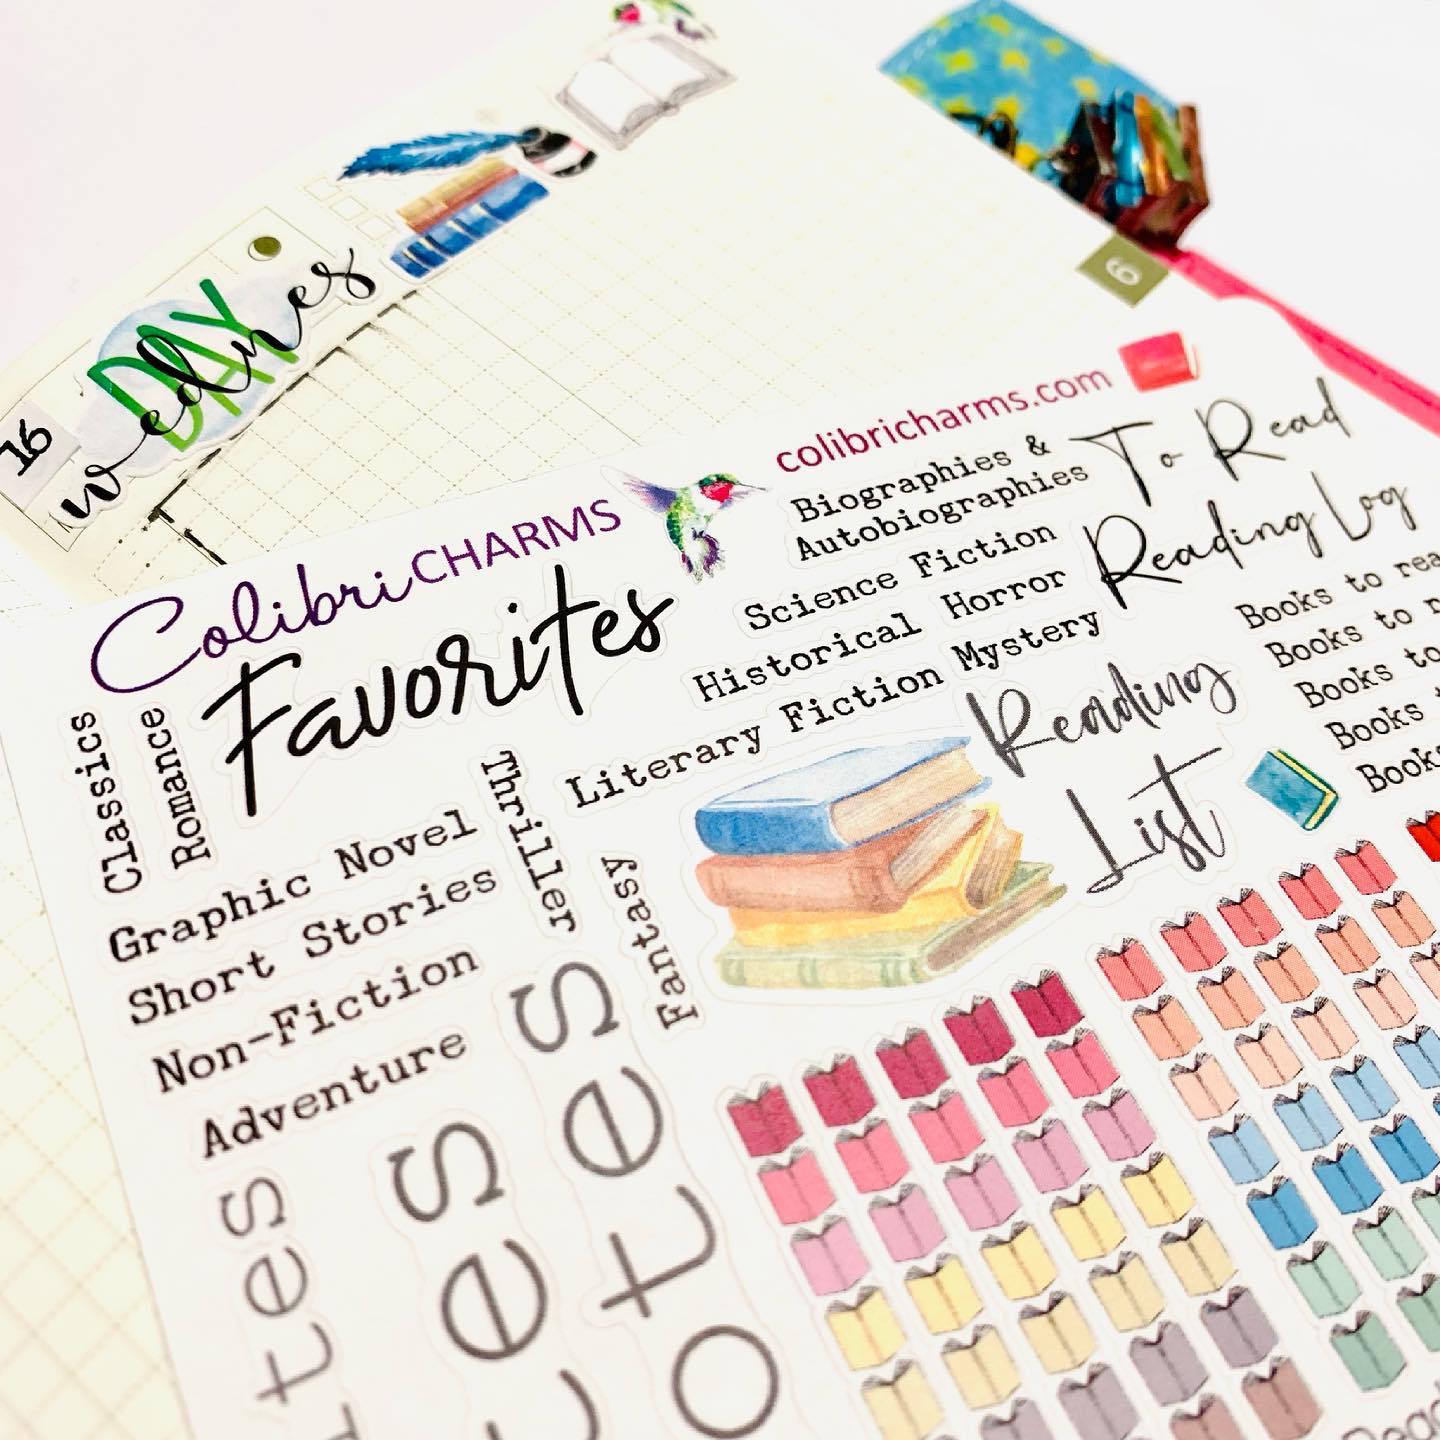 16
wednes
DAY
6
colibricharms.com
ColibriCHARMS
Favorites
Biographies &
Autobiographies
To Read
Science Fiction
Reading Log
Historical
Horror
Literary Fiction
Mystery
Reading
List
Books to
Books to
Books to
Books
Books
Classics
Romance
Thriller
Fantasy
Graphic Novel
Short Stories
Non-Fiction
Adventure